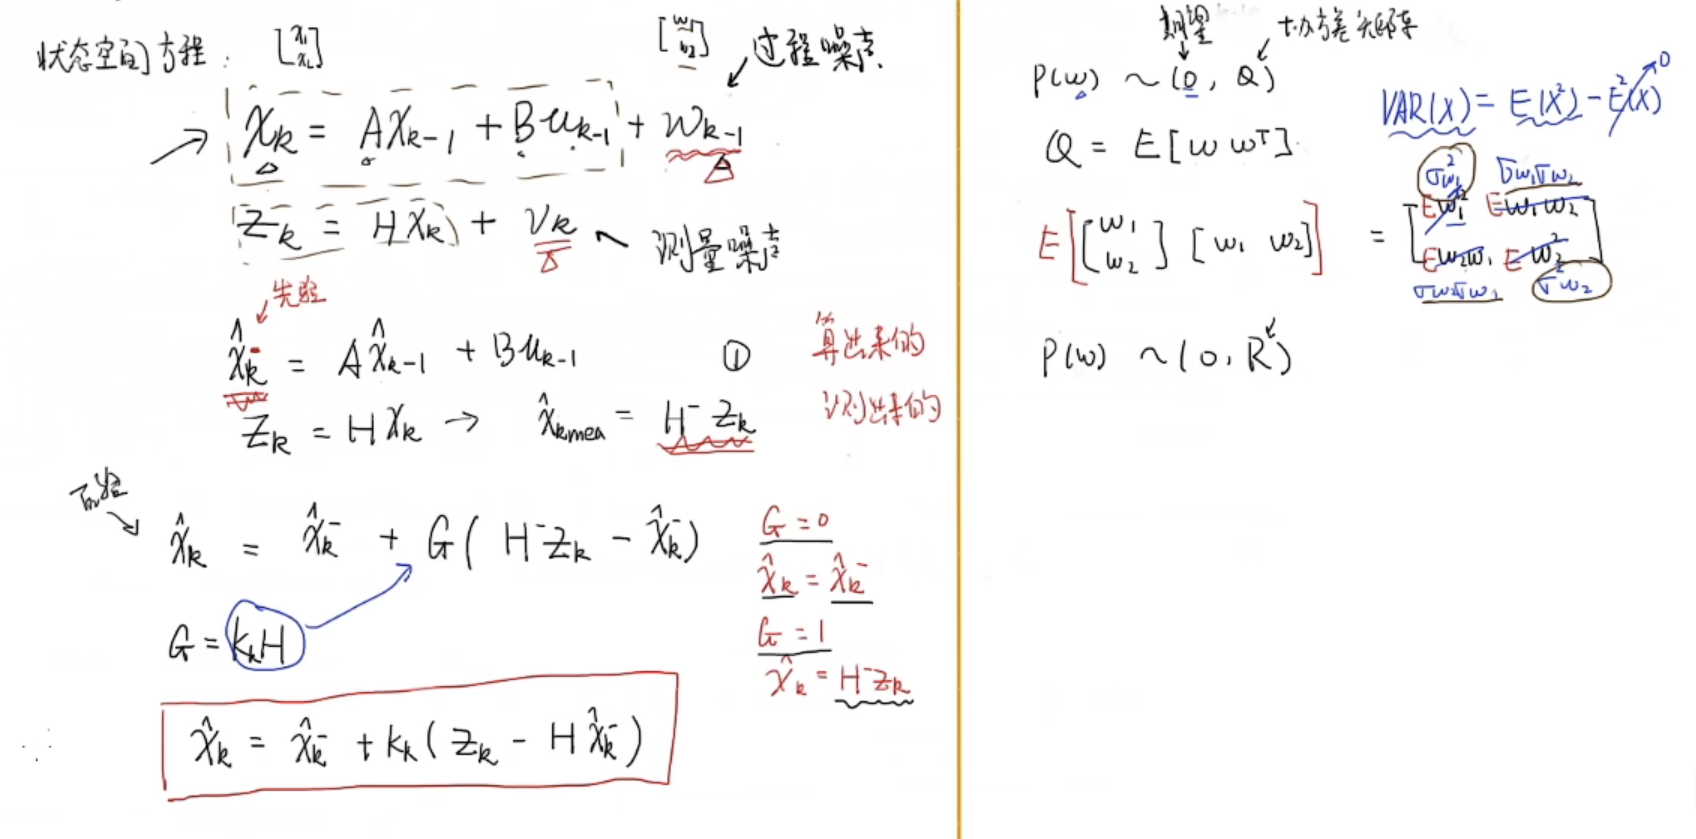 状态空间方程: [x₁ x₂] [w₁ w₂] 过程噪声
X_k = AX_{k-1} + Bu_{k-1} + w_{k-1}
Z_k = HX_k + v_k ~ 测量噪声
先验
x̂_k⁻ = Ax̂_{k-1} + Bu_{k-1} ① 算出来的
Z_k = HX_k → x̂_{kmea} = H⁻Z_k 测出来的
后验
x̂_k = x̂_k⁻ + G(H⁻Z_k - x̂_k⁻)
G = K_kH
x̂_k = x̂_k⁻ + K_k(Z_k - Hx̂_k⁻)
G = 0
x̂_k = x̂_k⁻
G = 1
x̂_k = H⁻Z_k
期望 协方差矩阵
P(w) ~ (0, Q)
VAR(X) = E(X²) - E²(X) 0
Q = E[w wᵀ]
σ²w₁ σw₁σw₂
E[[w₁ w₂] [w₁ w₂]] = [Ew₁² Ew₁w₂
Ew₂w₁ Ew₂²]
σw₂σw₁ σ²w₂
P(w) ~ (0, R)